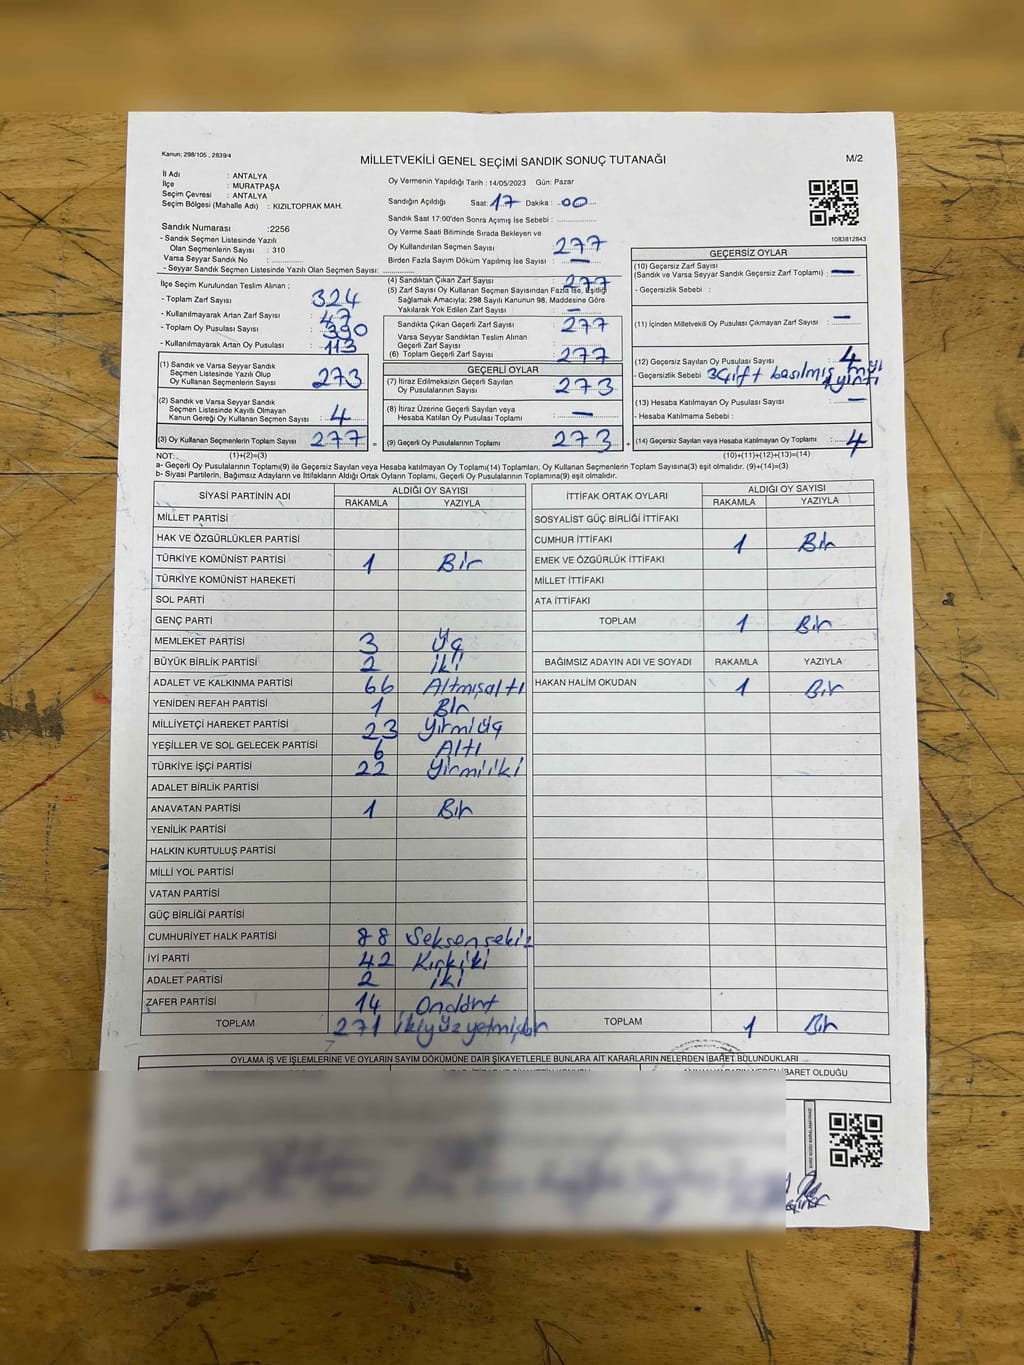 Kanun: 298/105 , 2839/4
MİLLETVEKİLİ GENEL SEÇİMİ SANDIK SONUÇ TUTANAĞI
M/2
İl Adı : ANTALYA
İlçe : MURATPAŞA
Seçim Çevresi : ANTALYA
Seçim Bölgesi (Mahalle Adı) : KIZILTOPRAK MAH.
Oy Vermenin Yapıldığı Tarih : 14/05/2023 Gün: Pazar
Sandığın Açıldığı Saat: 17 Dakika : 00
Sandık Saat 17:00'den Sonra Açılmış İse Sebebi :
Oy Verme Saati Bitiminde Sırada Bekleyen ve
Oy Kullandırılan Seçmen Sayısı 277
Birden Fazla Sayım Döküm Yapılmış İse Sayısı : —
1083812843
Sandık Numarası :2256
- Sandık Seçmen Listesinde Yazılı
Olan Seçmenlerin Sayısı : 310
Varsa Seyyar Sandık No :
- Seyyar Sandık Seçmen Listesinde Yazılı Olan Seçmen Sayısı:
İlçe Seçim Kurulundan Teslim Alınan ;
- Toplam Zarf Sayısı : 324
- Kullanılmayarak Artan Zarf Sayısı : 47
- Toplam Oy Pusulası Sayısı : 390
- Kullanılmayarak Artan Oy Pusulası : 113
(1) Sandık ve Varsa Seyyar Sandık
Seçmen Listesinde Yazılı Olup
Oy Kullanan Seçmenlerin Sayısı : 273
(2) Sandık ve Varsa Seyyar Sandık
Seçmen Listesinde Kayıtlı Olmayan
Kanun Gereği Oy Kullanan Seçmen Sayısı : 4
(3) Oy Kullanan Seçmenlerin Toplam Sayısı : 277 =
(4) Sandıktan Çıkan Zarf Sayısı : 277
(5) Zarf Sayısı Oy Kullanan Seçmen Sayısından Fazla İse, Eşitliği
Sağlamak Amacıyla; 298 Sayılı Kanunun 98. Maddesine Göre
Yakılarak Yok Edilen Zarf Sayısı : —
Sandıkta Çıkan Geçerli Zarf Sayısı : 277
Varsa Seyyar Sandıktan Teslim Alınan
Geçerli Zarf Sayısı :
(6) Toplam Geçerli Zarf Sayısı : 277
GEÇERLİ OYLAR
(7) İtiraz Edilmeksizin Geçerli Sayılan
Oy Pusulalarının Sayısı : 273
(8) İtiraz Üzerine Geçerli Sayılan veya
Hesaba Katılan Oy Pusulası Toplamı : —
(9) Geçerli Oy Pusulalarının Toplamı : 273 +
GEÇERSİZ OYLAR
(10) Geçersiz Zarf Sayısı
(Sandık ve Varsa Seyyar Sandık Geçersiz Zarf Toplamı) : —
- Geçersizlik Sebebi :
(11) İçinden Milletvekili Oy Pusulası Çıkmayan Zarf Sayısı : —
(12) Geçersiz Sayılan Oy Pusulası Sayısı : 4
- Geçersizlik Sebebi : 3 çift basılmış
(13) Hesaba Katılmayan Oy Pusulası Sayısı : —
- Hesaba Katılmama Sebebi :
(14) Geçersiz Sayılan veya Hesaba Katılmayan Oy Toplamı : 4
NOT: (1)+(2)=(3) (10)+(11)+(12)+(13)=(14)
a- Geçerli Oy Pusulalarının Toplamı(9) ile Geçersiz Sayılan veya Hesaba katılmayan Oy Toplamı(14) Toplamları, Oy Kullanan Seçmenlerin Toplam Sayısına(3) eşit olmalıdır. (9)+(14)=(3)
b- Siyasi Partilerin, Bağımsız Adayların ve İttifakların Aldığı Ortak Oyların Toplamı, Geçerli Oy Pusulalarının Toplamına(9) eşit olmalıdır.
SİYASİ PARTİNİN ADI ALDIĞI OY SAYISI
RAKAMLA YAZIYLA
MİLLET PARTİSİ
HAK VE ÖZGÜRLÜKLER PARTİSİ
TÜRKİYE KOMÜNİST PARTİSİ 1 Bir
TÜRKİYE KOMÜNİST HAREKETİ
SOL PARTİ
GENÇ PARTİ
MEMLEKET PARTİSİ 3 Üç
BÜYÜK BİRLİK PARTİSİ 2 iki
ADALET VE KALKINMA PARTİSİ 66 Altmışaltı
YENİDEN REFAH PARTİSİ 1 Bir
MİLLİYETÇİ HAREKET PARTİSİ 23 Yirmiüç
YEŞİLLER VE SOL GELECEK PARTİSİ 6 Altı
TÜRKİYE İŞÇİ PARTİSİ 22 Yirmiiki
ADALET BİRLİK PARTİSİ
ANAVATAN PARTİSİ 1 Bir
YENİLİK PARTİSİ
HALKIN KURTULUŞ PARTİSİ
MİLLİ YOL PARTİSİ
VATAN PARTİSİ
GÜÇ BİRLİĞİ PARTİSİ
CUMHURİYET HALK PARTİSİ 88 Seksensekiz
İYİ PARTİ 42 Kırkiki
ADALET PARTİSİ 2 iki
ZAFER PARTİSİ 14 Ondört
TOPLAM 271 ikiyüzyetmişbir
İTTİFAK ORTAK OYLARI ALDIĞI OY SAYISI
RAKAMLA YAZIYLA
SOSYALİST GÜÇ BİRLİĞİ İTTİFAKI
CUMHUR İTTİFAKI 1 Bir
EMEK VE ÖZGÜRLÜK İTTİFAKI
MİLLET İTTİFAKI
ATA İTTİFAKI
TOPLAM 1 Bir
BAĞIMSIZ ADAYIN ADI VE SOYADI RAKAMLA YAZIYLA
HAKAN HALİM OKUDAN 1 Bir
TOPLAM 1 Bir
OYLAMA İŞ VE İŞLEMLERİNE VE OYLARIN SAYIM DÖKÜMÜNE DAİR ŞİKAYETLERLE BUNLARA AİT KARARLARIN NELERDEN İBARET BULUNDUKLARI
İBARET OLDUĞU